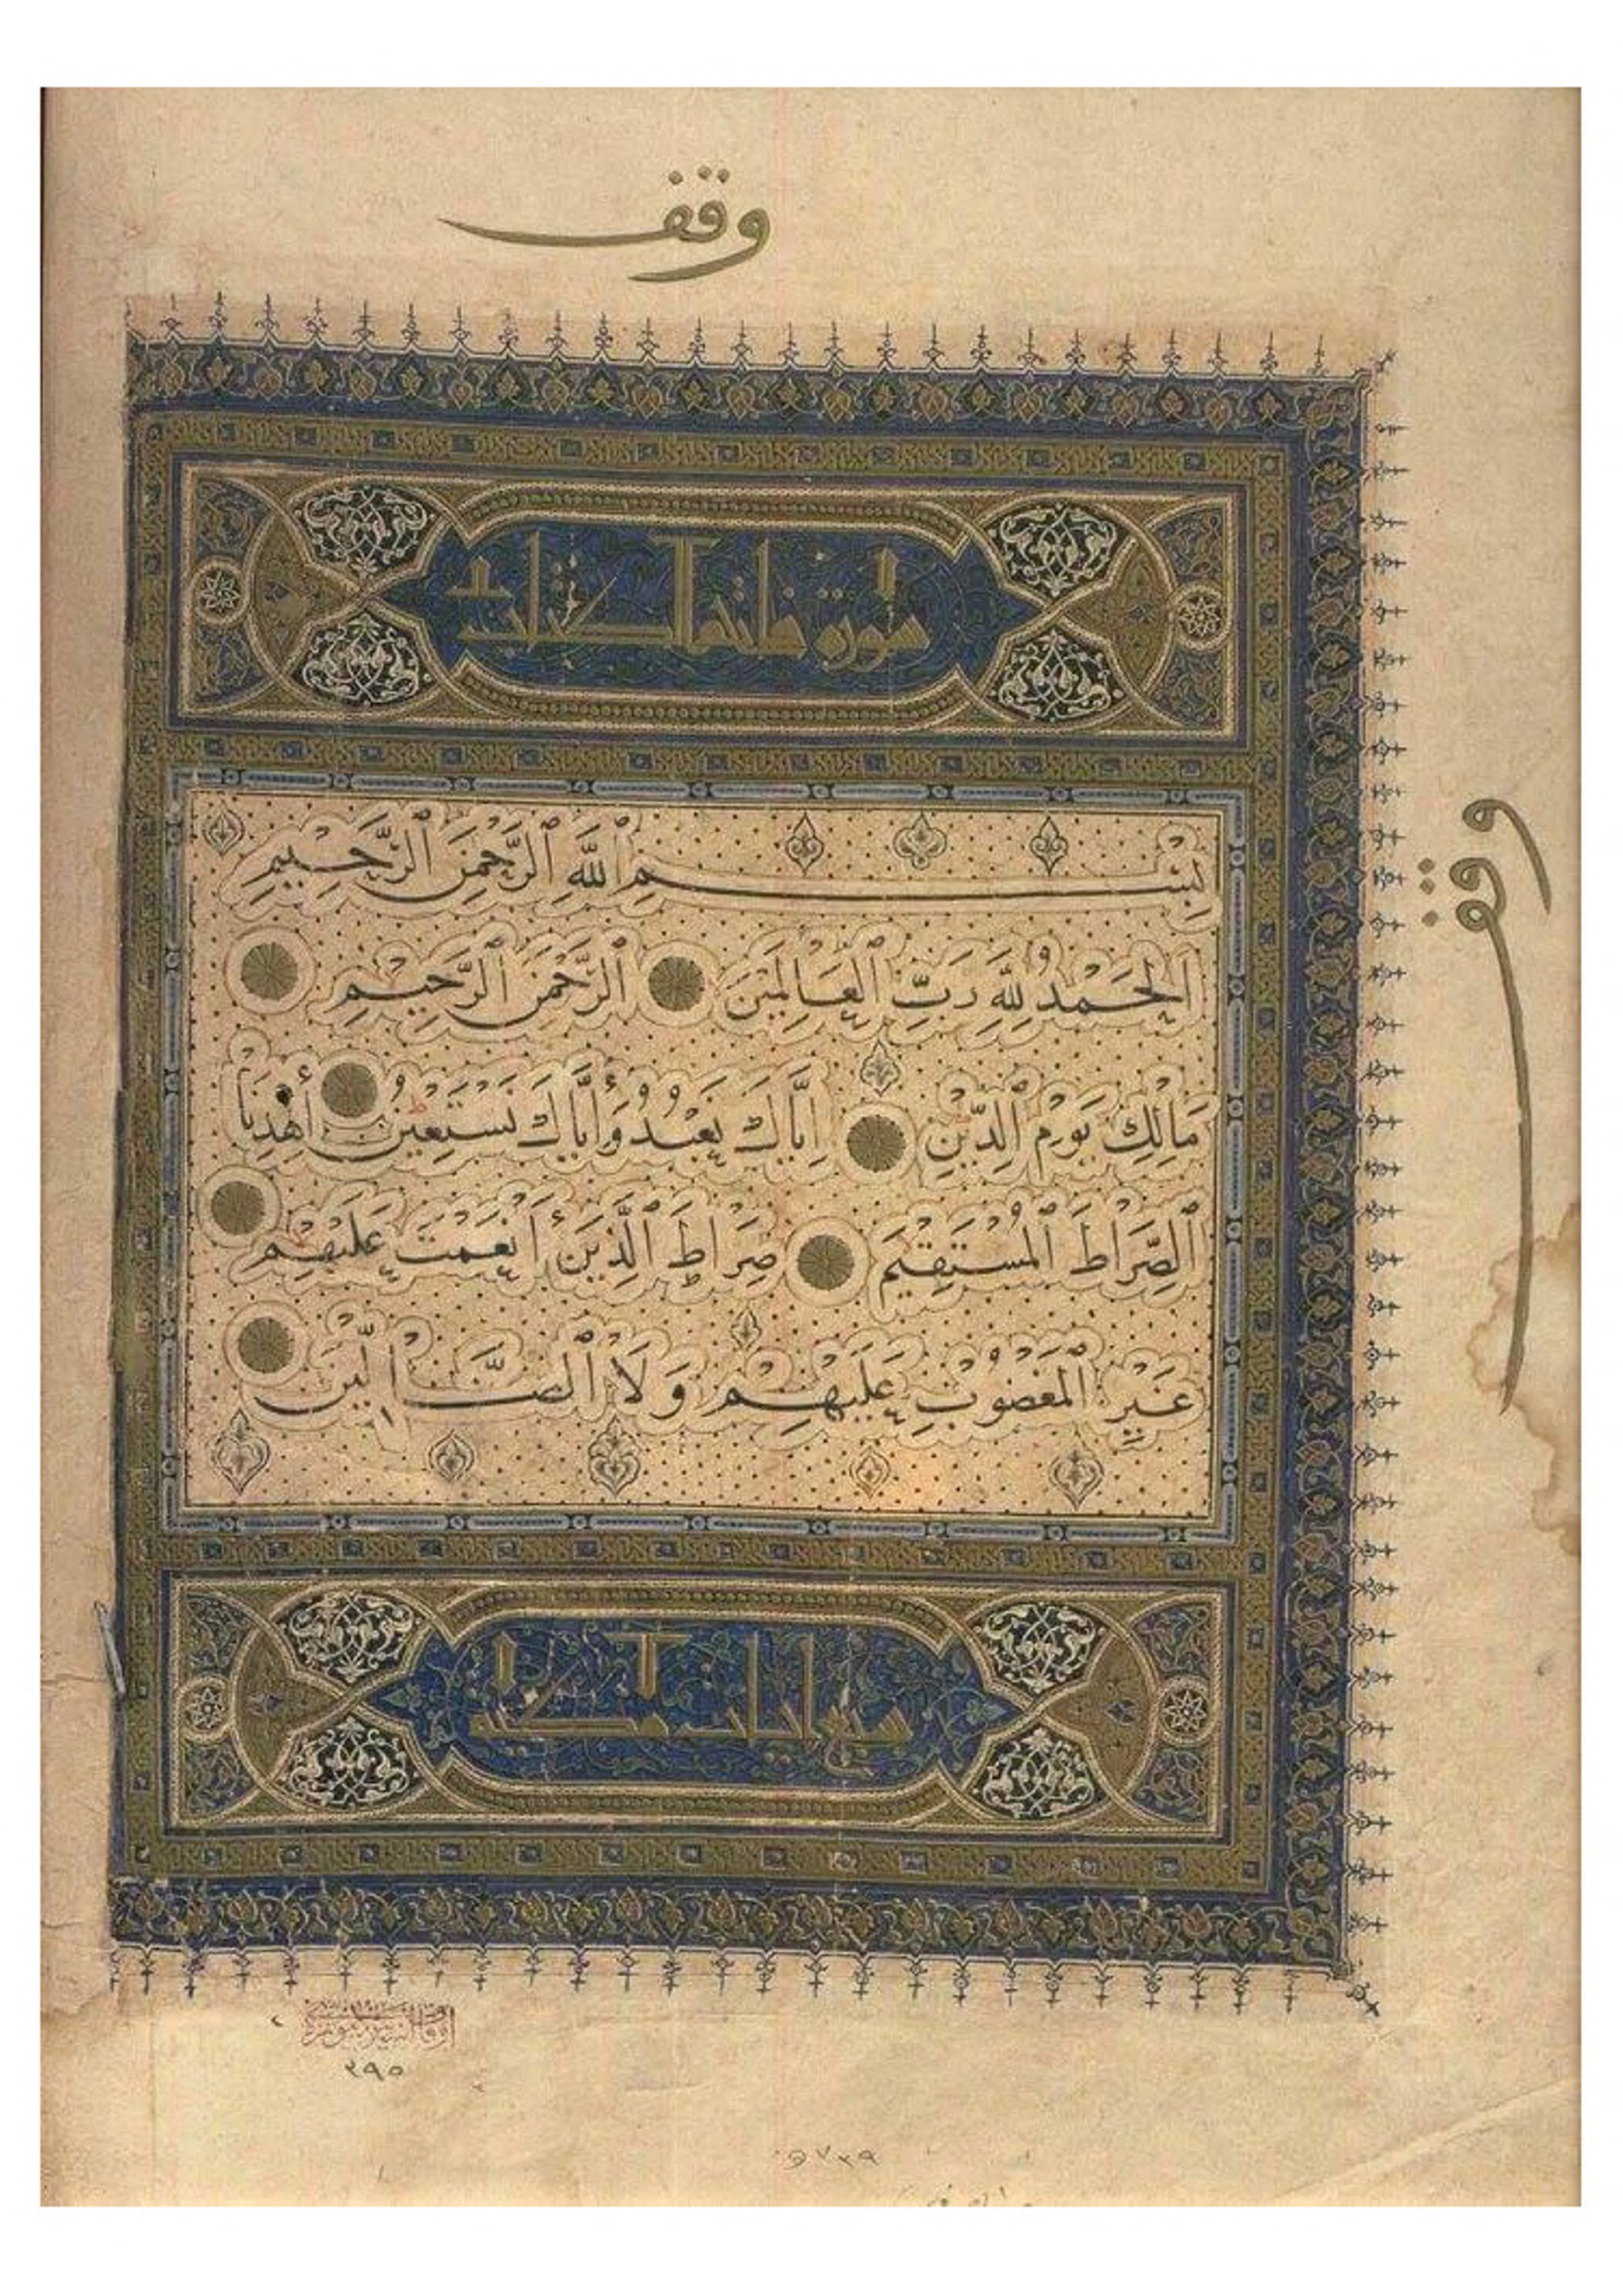 وقف
سورة فاتحة الكتاب
بِسْمِ ٱللَّهِ ٱلرَّحْمٰنِ ٱلرَّحِيمِ
اَلْحَمْدُ لِلَّهِ رَبِّ ٱلْعَالَمِينَ ٱلرَّحْمٰنِ ٱلرَّحِيمِ
مَالِكِ يَوْمِ ٱلدِّينِ اِيَّاكَ نَعْبُدُ وَأِيَّاكَ نَسْتَعِينُ أهْدِنَا
ٱلصِّرَاطَ ٱلْمُسْتَقِيمَ صِرَاطَ ٱلَّذِينَ أَنْعَمْتَ عَلَيْهِمْ
غَيْرِ ٱلْمَغْضُوبِ عَلَيْهِمْ وَلَا ٱلضَّالِّينَ
سبع ايات مكية
وقف
٢٩٥